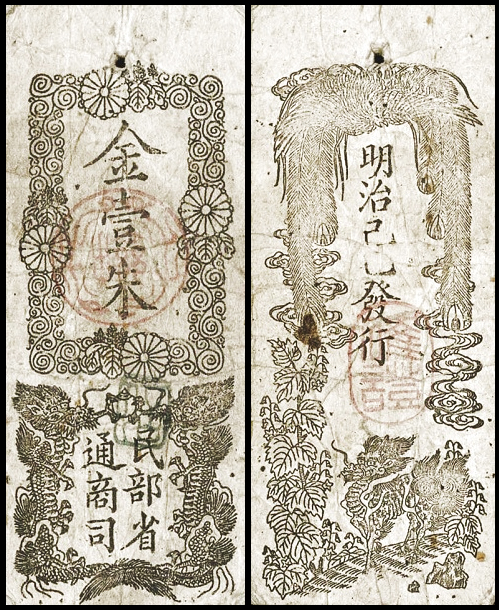 金壹朱
民部省
通商司
明治己巳發行